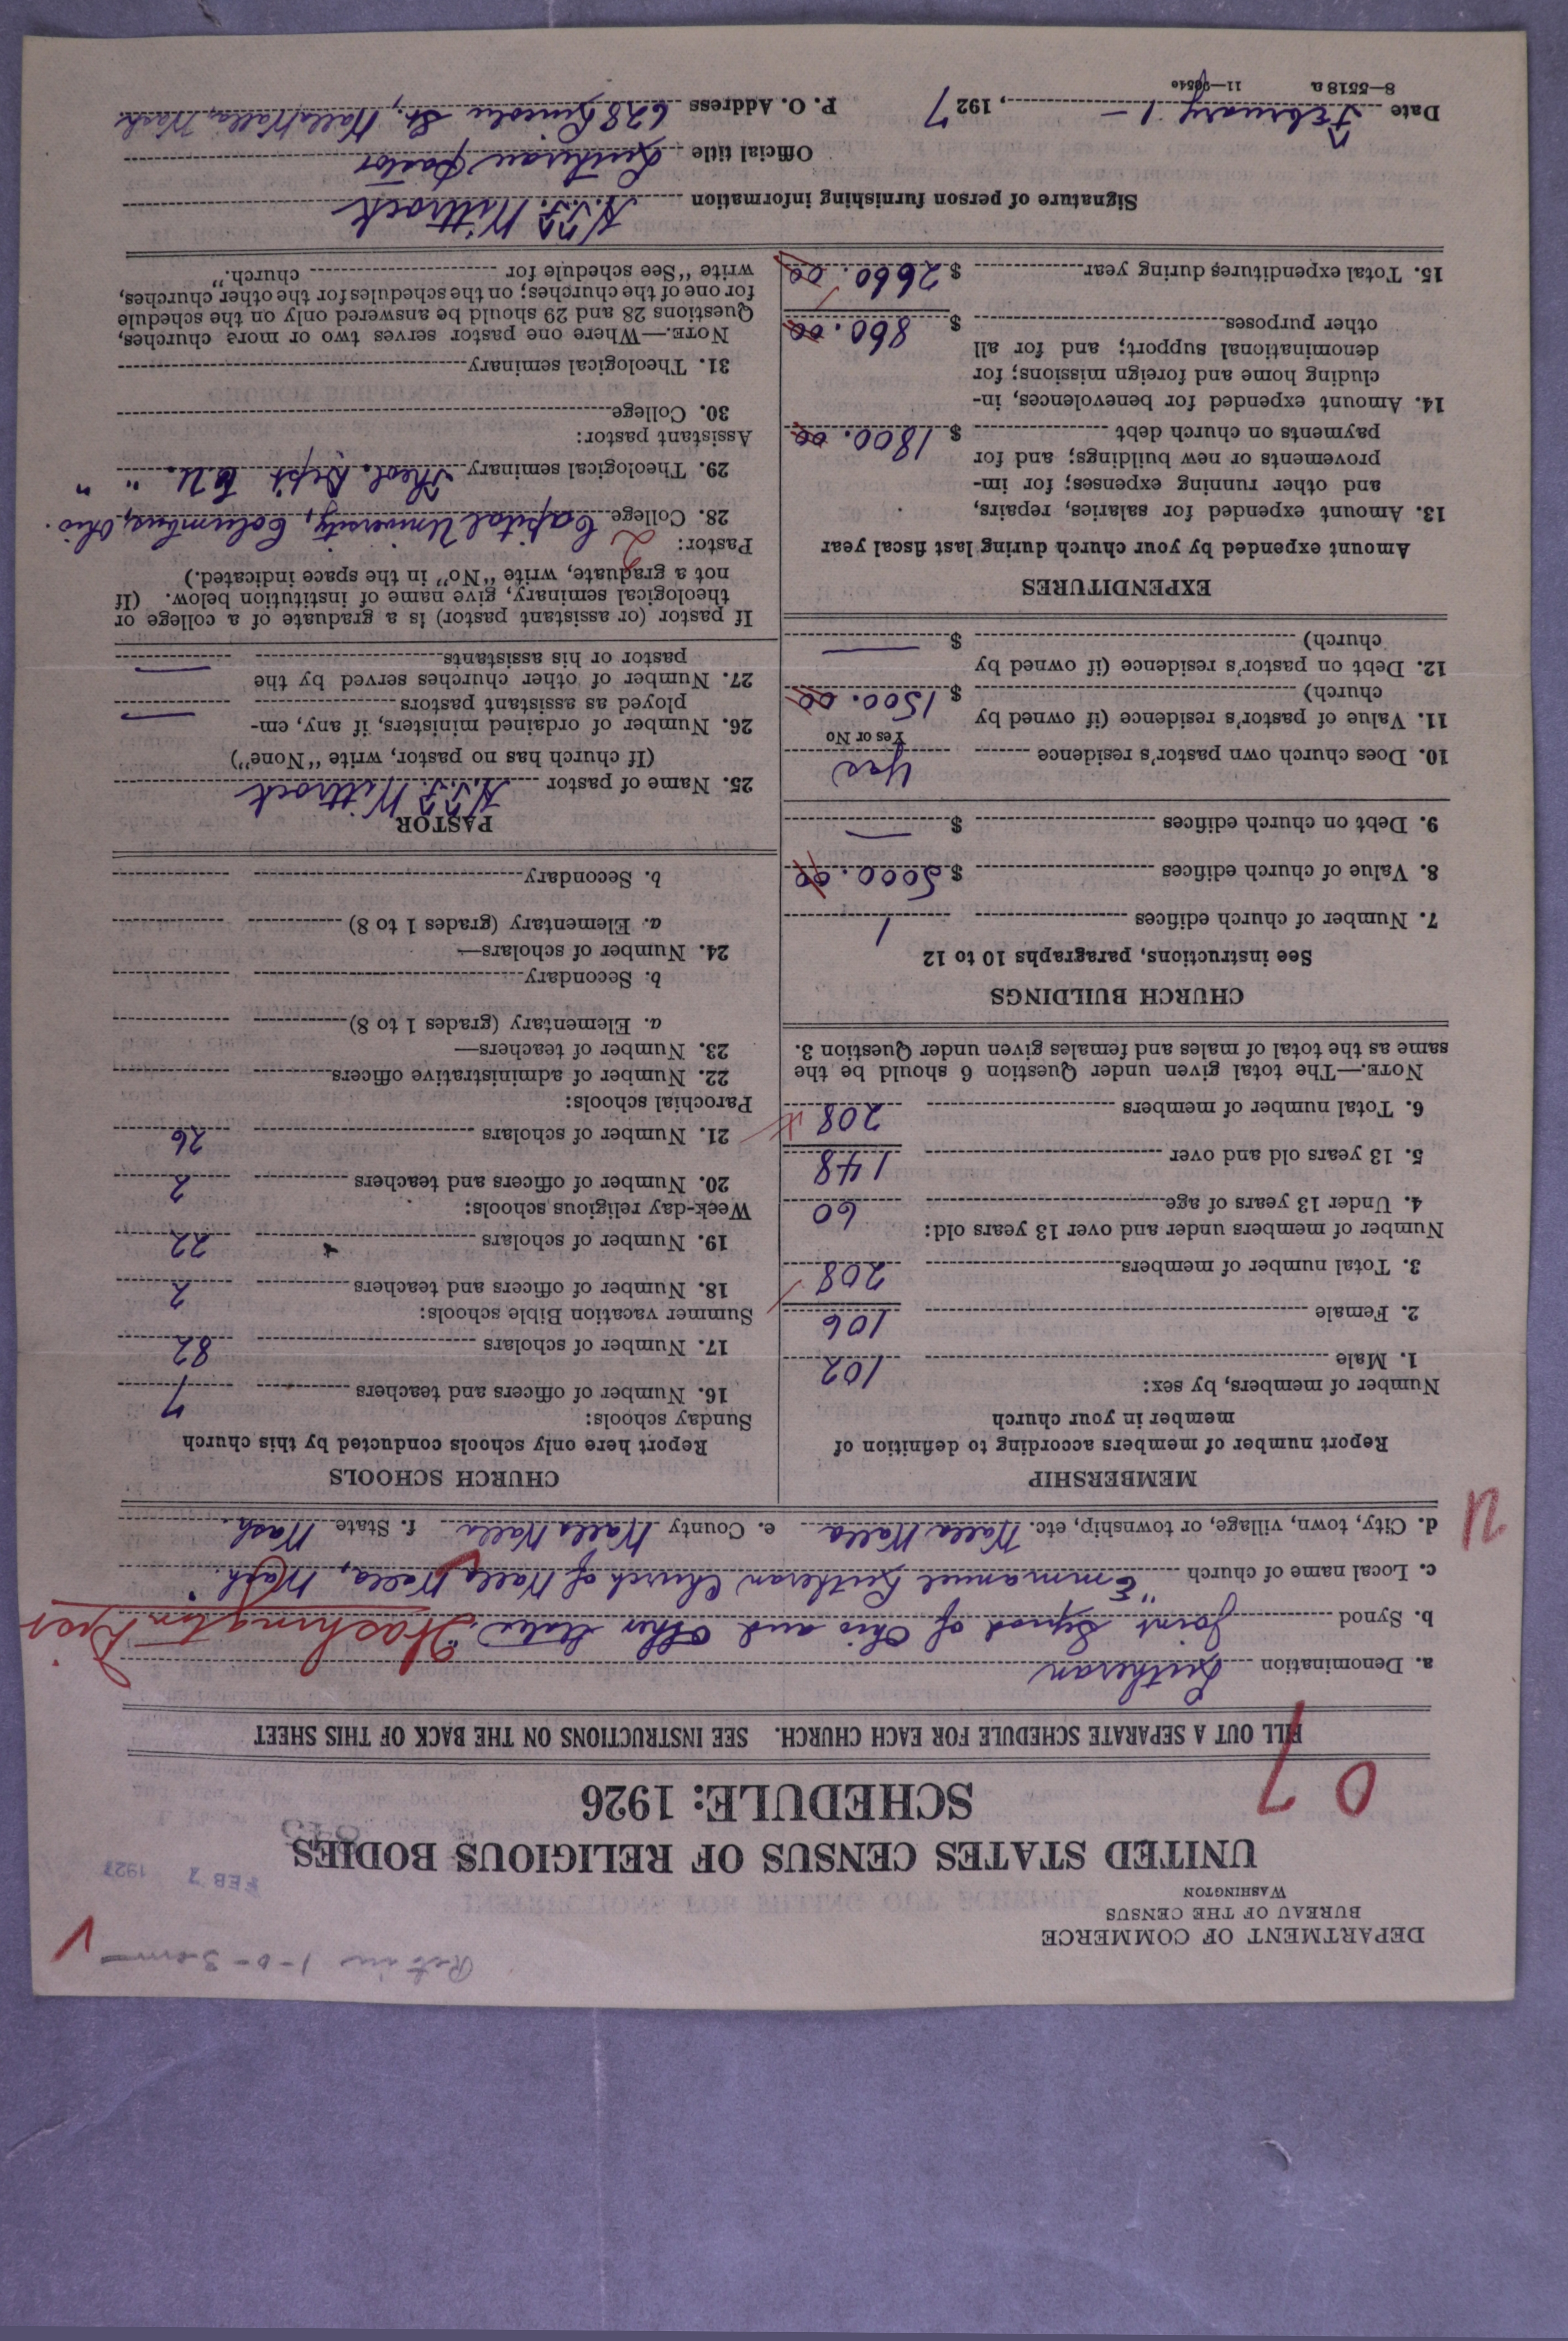 DEPARTMENT OF COMMERCE
BUREAU OF THE CENSUS
WASHINGTON
FEB 7 1927
UNITED STATES CENSUS OF RELIGIOUS BODIES
SCHEDULE: 1926
07
FILL OUT A SEPARATE SCHEDULE FOR EACH CHURCH. SEE INSTRUCTIONS ON THE BACK OF THIS SHEET
a. Denomination Lutheran
b. Synod Joint Synod of Ohio and Other States. Washington Dist
c. Local name of church "Emmanuel Lutheran Church of Walla Walla, Wash."
d. City, town, village, or township, etc. Walla Walla e. County Walla Walla f. State Wash.
MEMBERSHIP
Report number of members according to definition of
member in your church
Number of members, by sex:
1. Male 102
2. Female 106
3. Total number of members 208
Number of members under and over 13 years old:
4. Under 13 years of age 60
5. 13 years old and over 148
6. Total number of members 208
NOTE.—The total given under Question 6 should be the
same as the total of males and females given under Question 3.
CHURCH BUILDINGS
See instructions, paragraphs 10 to 12
7. Number of church edifices 1
8. Value of church edifices $ 5000.00
9. Debt on church edifices $ —
10. Does church own pastor's residence Yes
Yes or No
11. Value of pastor's residence (if owned by
church) $ 1500.00
12. Debt on pastor's residence (if owned by
church) $ —
EXPENDITURES
Amount expended by your church during last fiscal year
13. Amount expended for salaries, repairs,
and other running expenses; for im-
provements or new buildings; and for
payments on church debt $ 1800.00
14. Amount expended for benevolences, in-
cluding home and foreign missions; for
denominational support; and for all
other purposes $ 860.00
15. Total expenditures during year $ 2660.00
CHURCH SCHOOLS
Report here only schools conducted by this church
Sunday schools:
16. Number of officers and teachers 7
17. Number of scholars 82
Summer vacation Bible schools:
18. Number of officers and teachers 2
19. Number of scholars 22
Week-day religious schools:
20. Number of officers and teachers 2
21. Number of scholars 26
Parochial schools:
22. Number of administrative officers
23. Number of teachers—
a. Elementary (grades 1 to 8)
b. Secondary
24. Number of scholars—
a. Elementary (grades 1 to 8)
b. Secondary
PASTOR
25. Name of pastor H.T.F. Wittrock
(If church has no pastor, write "None")
26. Number of ordained ministers, if any, em-
ployed as assistant pastors —
27. Number of other churches served by the
pastor or his assistants —
If pastor (or assistant pastor) is a graduate of a college or
theological seminary, give name of institution below. (If
not a graduate, write "No" in the space indicated.)
Pastor: 2
28. College Capital University, Columbus, Ohio.
29. Theological seminary Theol. Dept. C.U. " "
Assistant pastor:
30. College
31. Theological seminary
NOTE.—Where one pastor serves two or more churches,
Questions 28 and 29 should be answered only on the schedule
for one of the churches; on the schedules for the other churches,
write "See schedule for church."
Signature of person furnishing information H.T.F. Wittrock
Official title Lutheran Pastor
Date February 1-, 1927 P. O. Address 628 Lincoln St., Walla Walla, Wash.
8—5518 a